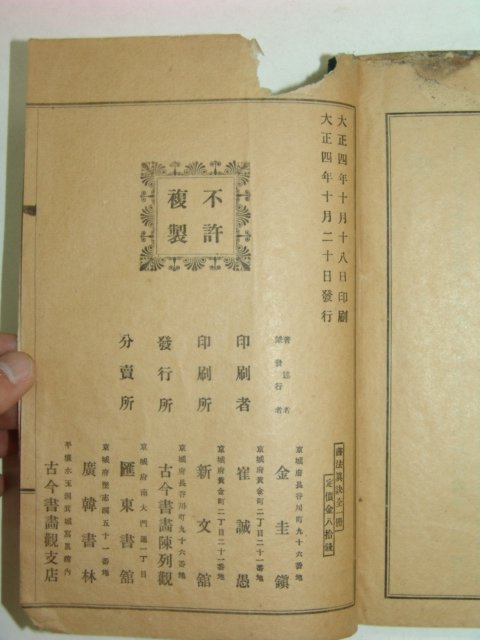 大正四年十月十八日印刷
大正四年十月二十日發行
書法眞訣全一冊
定價金八拾錢
不許
複製
著述者
兼發行者
京城府長谷川町九十六番地
金圭鎭
印刷者
京城府黃金町二丁目二十一番地
崔誠愚
印刷所
京城府黃金町二丁目二十一番地
新文舘
發行所
京城府長谷川町九十六番地
古今書畵陳列觀
分賣所
京城府南大門通一丁目
匯東書舘
京城府堅志洞五十一番地
廣韓書林
古今書畵觀支店